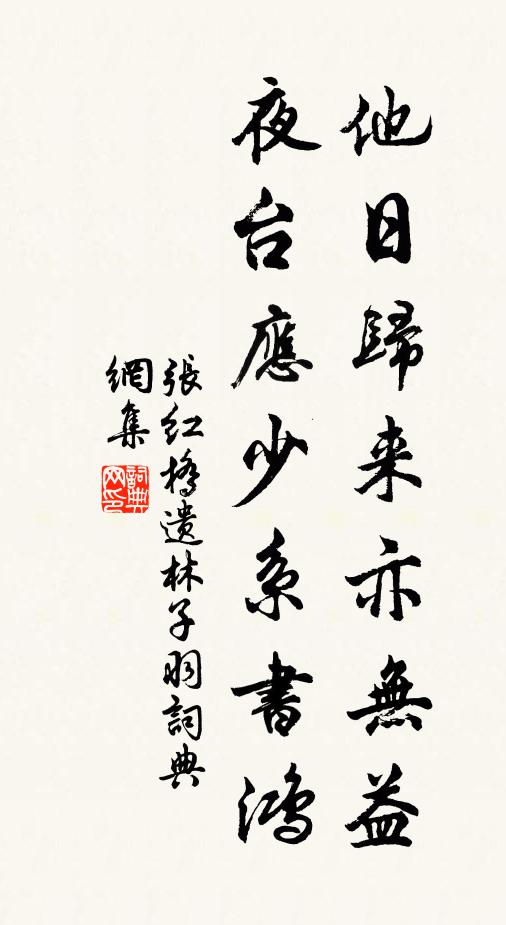 他日歸来亦無益
夜台應少系書鴻
張紅橋遗林子羽詞典
網集
詞典
网印